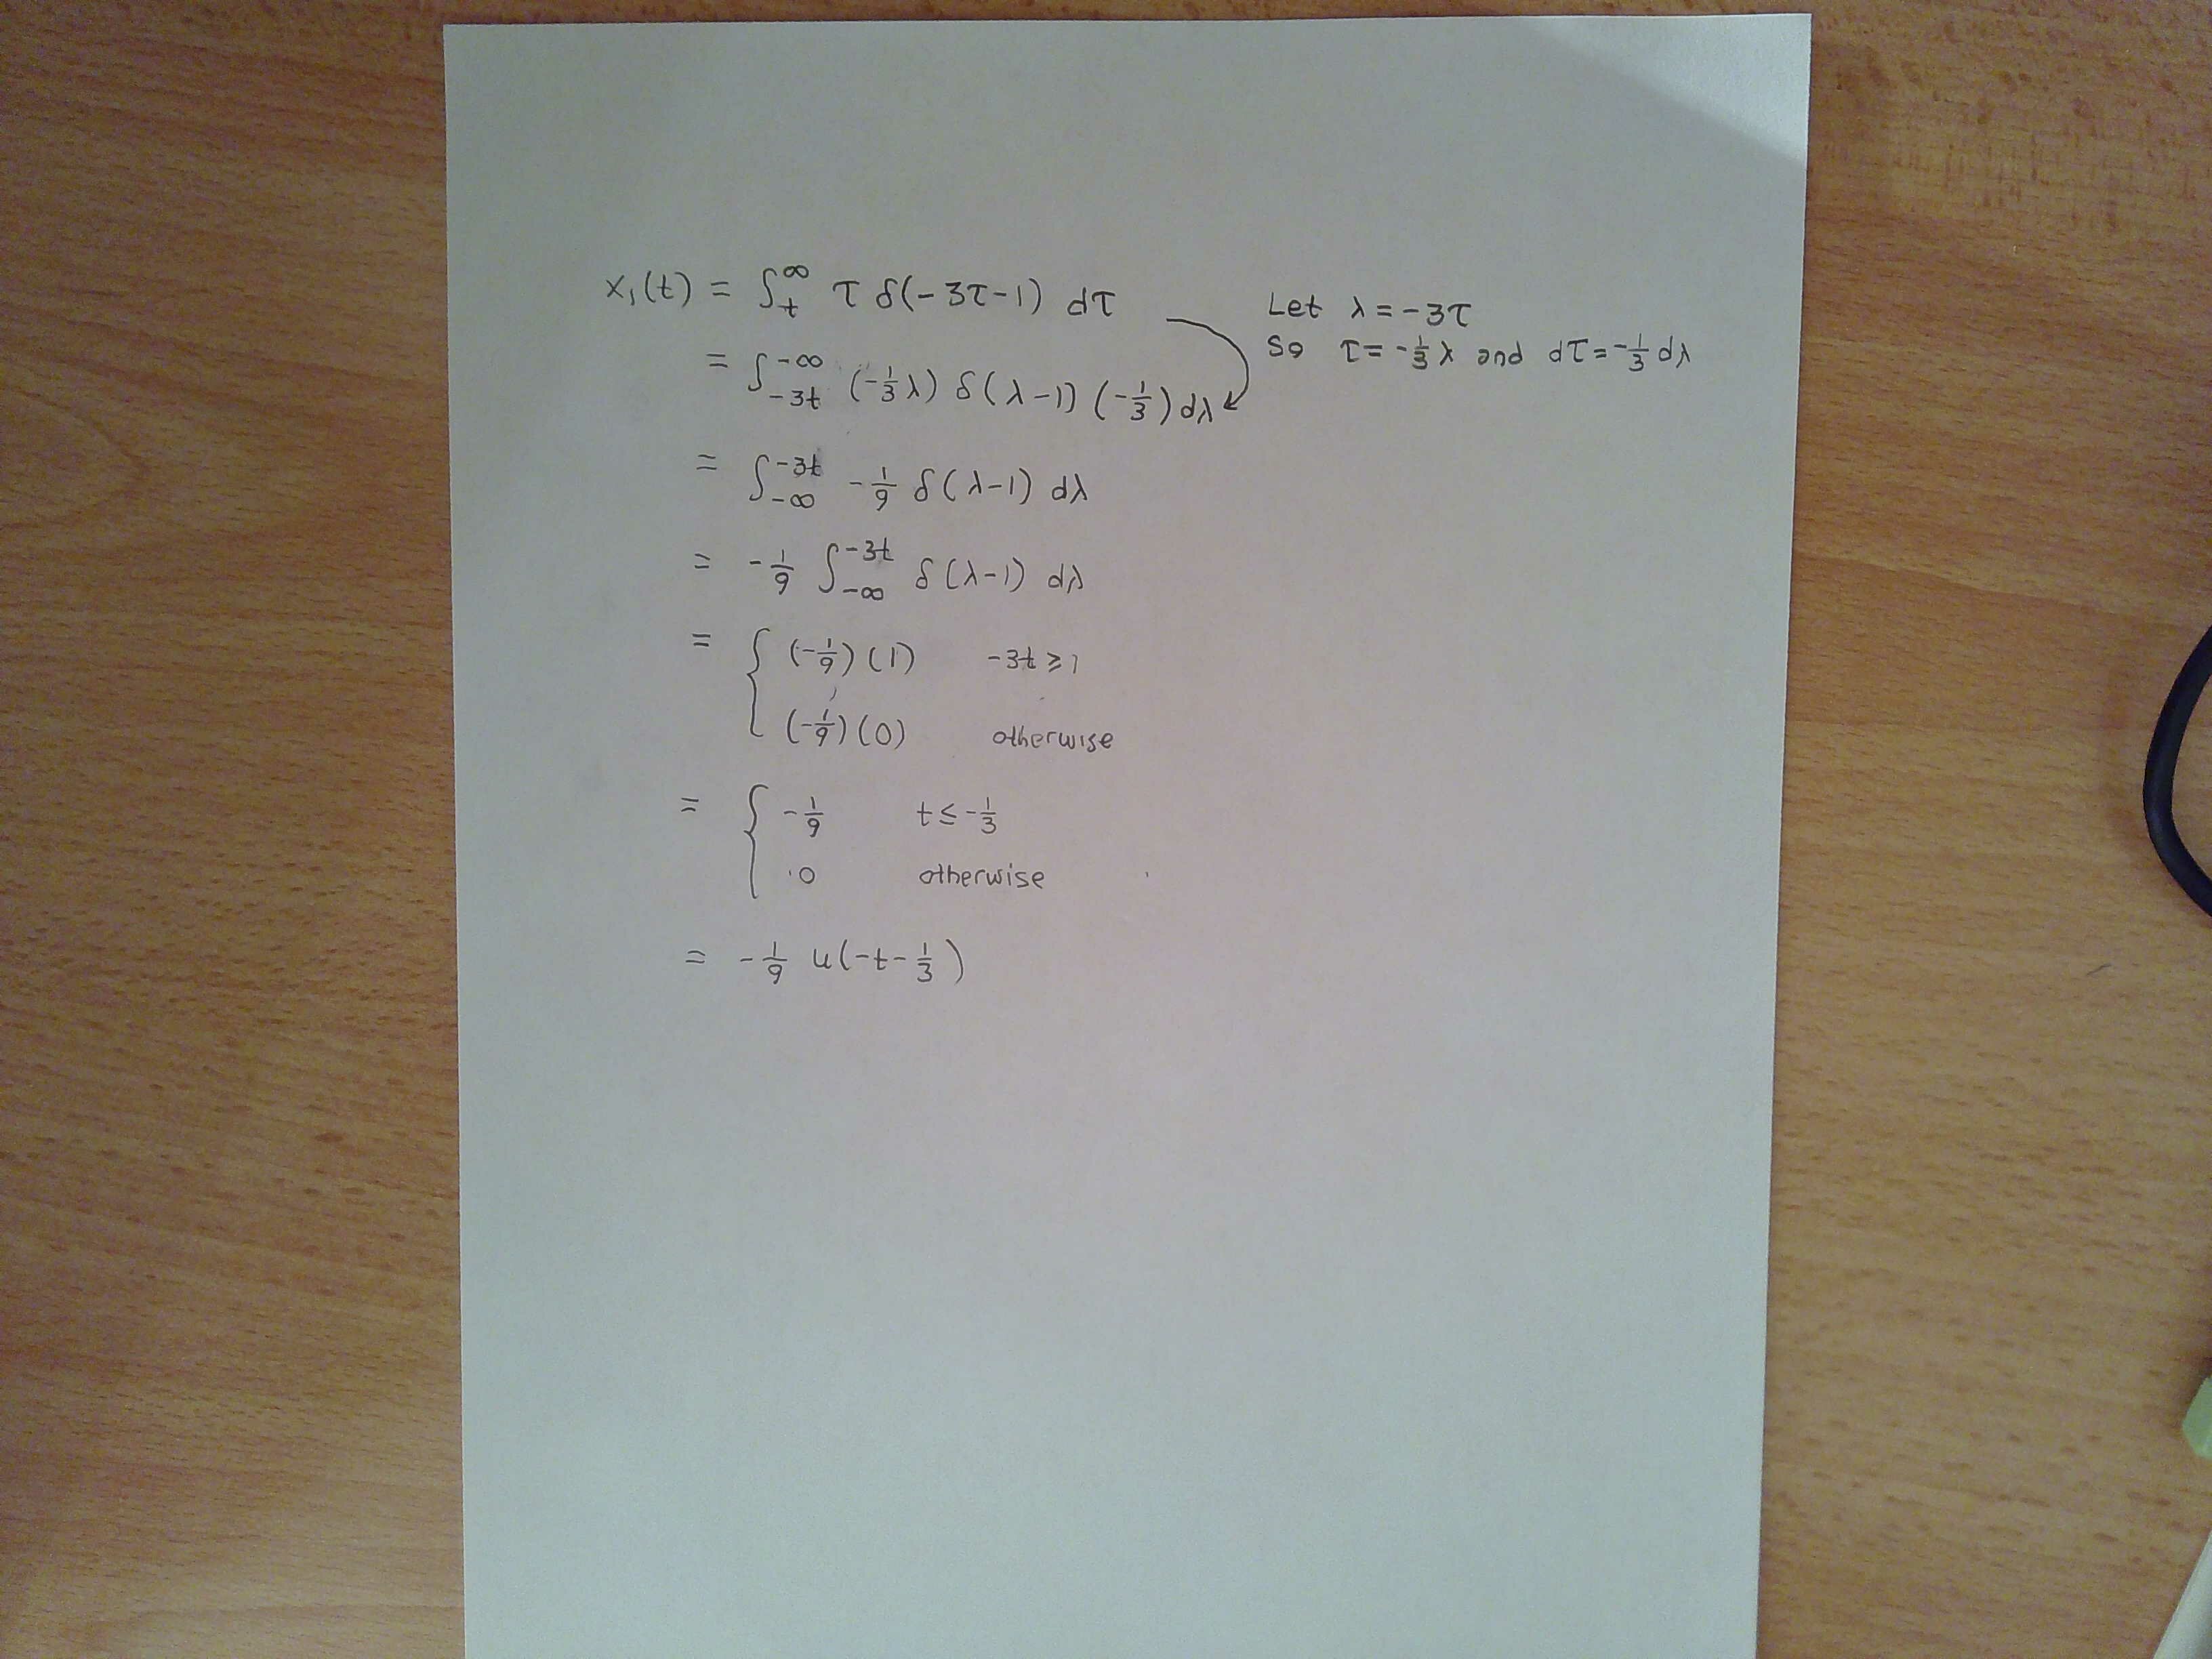 x₁(t) = ∫_t^∞ τ δ(-3τ-1) dτ
Let λ = -3τ
So τ = -⅓λ and dτ = -⅓ dλ
= ∫_{-3t}^{-∞} (-⅓λ) δ(λ-1) (-⅓) dλ
= ∫_{-∞}^{-3t} -1/9 δ(λ-1) dλ
= -1/9 ∫_{-∞}^{-3t} δ(λ-1) dλ
= { (-1/9)(1) -3t ≥ 1
(-1/9)(0) otherwise
= { -1/9 t ≤ -⅓
0 otherwise
= -1/9 u(-t-⅓)